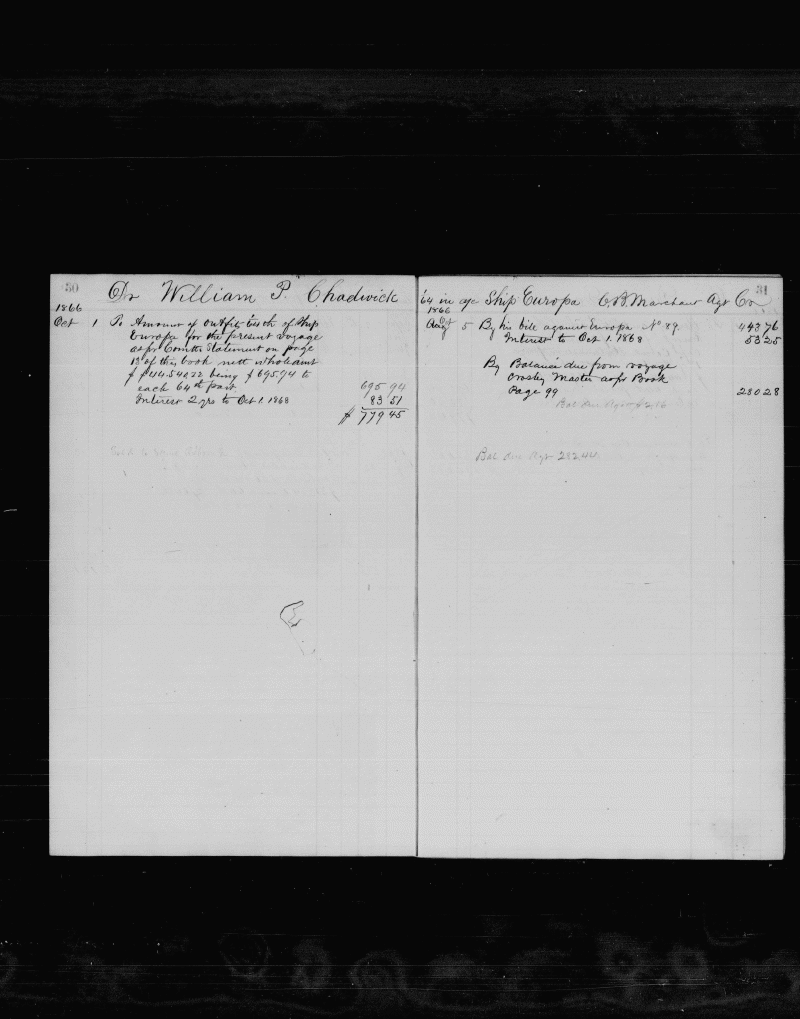 30
Dr William P. Chadwick
1866
Oct 1 To Amount of outfit each of Ship
Europa for the present voyage
as pr Comtts Statement on page
13 of this book nett whole amt
$ 44.540,22 being $ 695.94 to
each 64th part 695 94
Interest 2 yrs to Oct 1. 1868 83 51
$ 779 45
31
/64 in a/c Ship Europa C.B. Marchant Agt Cr
1866
Aug 5 By his bill against Europa No 89. 443 76
Interest to Oct 1. 1868 53 25
By Balance due from voyage
Crosby Master as pr Book
Page 99 280 28
Bal due Agt
Bal due Agt 282,44